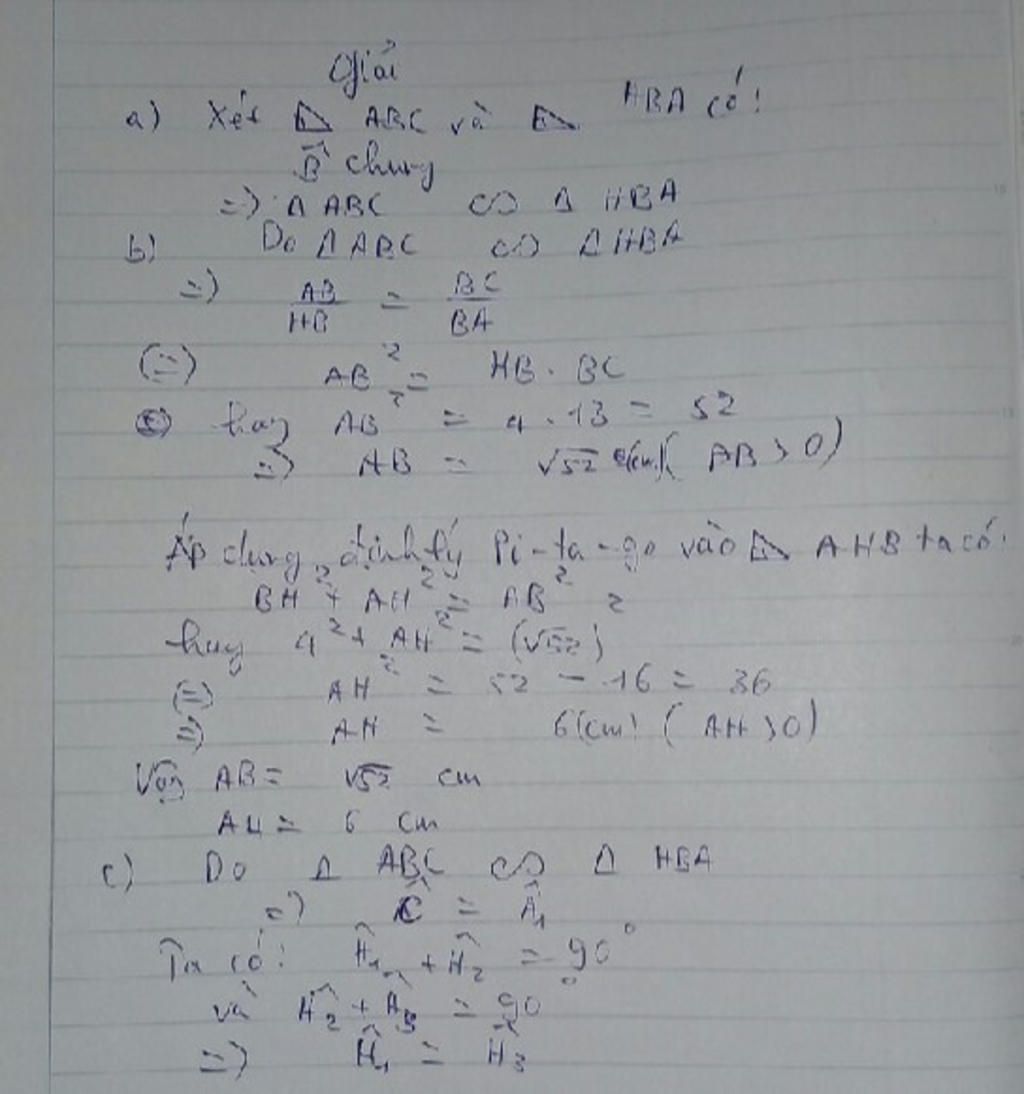 Giải
a) Xét ⊿ ABC và ⊿ HBA có:
B̂ chung
=> Δ ABC ∽ Δ HBA
b) Do Δ ABC ∽ Δ HBA
=> AB/HB = BC/BA
(=) AB² = HB . BC
hay AB² = 4 . 13 = 52
=> AB = √52 (cm) ( AB > 0)
Áp dụng định lý Pi-ta-go vào ⊿ AHB ta có:
BH² + AH² = AB²
hay 4² + AH² = (√52)²
(=) AH² = 52 - 16 = 36
=> AH = 6 (cm) ( AH > 0)
Vậy AB = √52 cm
AH = 6 cm
c) Do Δ ABC ∽ Δ HBA
=> Ĉ = Â₁
Ta có: Ĥ₁ + Ĥ₂ = 90°
và Ĥ₂ + Ĥ₃ = 90°
=> Ĥ₁ = Ĥ₃